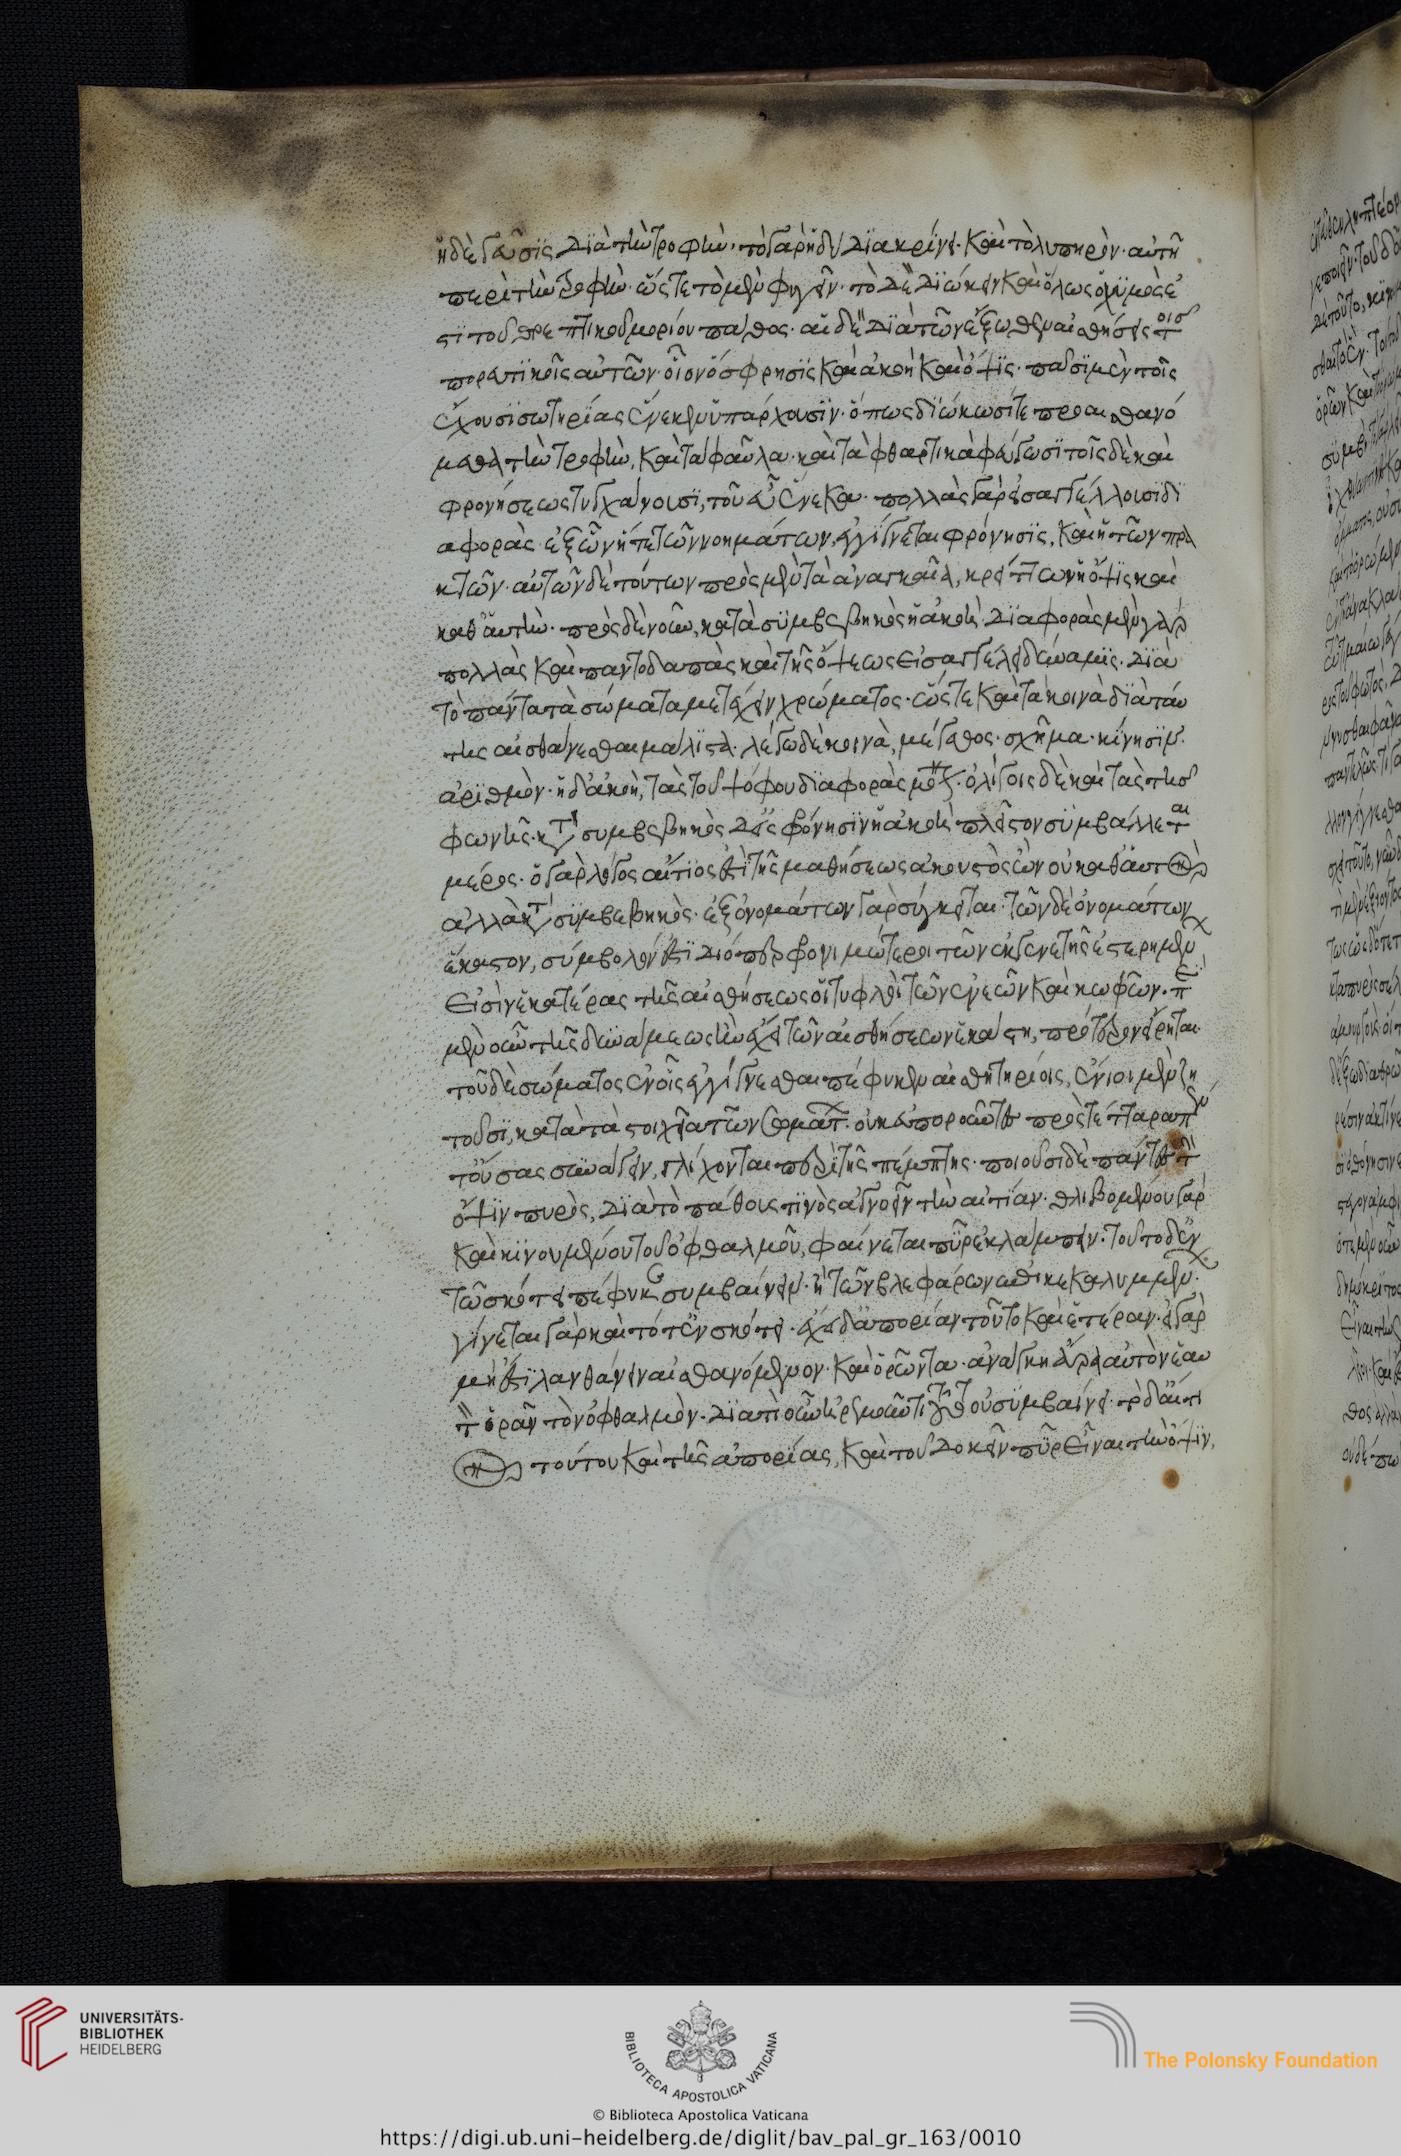 ἡ δὲ γεῦσις διὰ τὴν τροφήν· τὸ γὰρ ἡδὺ διακρίνει καὶ τὸ λυπηρὸν αὐτῇ
περὶ τὴν τροφήν· ὥστε τὸ μὲν φυγεῖν· τὸ δὲ διώκειν καὶ ὅλως ὁ χυμός ἐ
στι τοῦ θρεπτικοῦ μορίου πάθος· αἱ δὲ διὰ τῶν ἔξωθεν αἰσθήσεις τοῖς
πορευτικοῖς αὐτῶν· οἷον ὄσφρησις καὶ ἀκοὴ καὶ ὄψις· πᾶσι μὲν τοῖς
ἔχουσι σωτηρίας ἕνεκεν ὑπάρχουσιν· ὅπως διώκωσί τε προαισθανό
μενα τὴν τροφήν, καὶ τὰ φαῦλα καὶ τὰ φθαρτικὰ φεύγωσι τοῖς δὲ καὶ
φρονήσεως τυγχάνουσι, τοῦ εὖ ἕνεκα· πολλὰς γὰρ εἰσαγγέλλουσι δι
αφοράς· ἐξ ὧν ἥ τε τῶν νοημάτων ἐγγίγνεται φρόνησις, καὶ ἡ τῶν πρα
κτῶν· αὐτῶν δὲ τούτων πρὸς μὲν τὰ ἀναγκαῖα, κρείττων ἡ ὄψις καὶ
καθ' αὑτήν· πρὸς δὲ νοῦν, κατὰ συμβεβηκὸς ἡ ἀκοή· διαφορὰς μὲν γὰρ
πολλὰς καὶ παντοδαπὰς καὶ τῆς ὄψεως εἰσαγγέλει δύναμις· διὰ
τὸ πάντα τὰ σώματα μετέχειν χρώματος· ὥστε καὶ τὰ κοινὰ διὰ ταύ
της αἰσθάνεσθαι μάλιστα· λέγω δὲ κοινά, μέγεθος· σχῆμα· κίνησιν·
ἀριθμόν· ἡ δ' ἀκοή, τὰς τοῦ ψόφου διαφορὰς μόνον· ὀλίγοις δὲ καὶ τὰς τῆς
φωνῆς· κατὰ συμβεβηκὸς δὲ πρὸς φρόνησιν ἡ ἀκοὴ πλεῖστον συμβάλλεται
μέρος· ὁ γὰρ λόγος αἴτιός ἐστι τῆς μαθήσεως ἀκουστὸς ὢν οὐ καθ' αὑτὸν
ἀλλὰ κατὰ συμβεβηκός· ἐξ ὀνομάτων γὰρ σύγκειται· τῶν δὲ ὀνομάτων
ἕκαστον, σύμβολόν ἐστι διόπερ φρονιμώτεροι τῶν ἐκ γενετῆς ἐστερημένων
εἰσὶν ἑκατέρας τῆς αἰσθήσεως οἱ τυφλοὶ τῶν ἐνεῶν καὶ κωφῶν· περὶ
μὲν οὖν τῆς δυνάμεως ἣν ἔχει τῶν αἰσθήσεων ἑκάστη, πρότερον εἴρηται·
τοῦ δὲ σώματος ἐν οἷς ἐγγίγνεσθαι πέφυκεν αἰσθητηρίοις, ἔνιοι μὲν ζη
τοῦσι, κατὰ τὰ στοιχεῖα τῶν σωμάτων· οὐκ εὐποροῦντες πρὸς τέτταρα πέν
τε οὔσας συνάγειν, γλίχονται περὶ τῆς πέμπτης· ποιοῦσι δὲ πάντες τὴν
ὄψιν πυρός, διὰ τὸ πάθους τινὸς ἀγνοεῖν τὴν αἰτίαν· θλιβομένου γὰρ
καὶ κινουμένου τοῦ ὀφθαλμοῦ, φαίνεται πῦρ ἐκλάμπειν· τοῦτο δ' ἐν
τῷ σκότει πέφυκε συμβαίνειν· ἢ τῶν βλεφάρων ἐπικεκαλυμμένων·
γίνεται γὰρ καὶ τότε ἐν σκότει· ἔχει δ' ἀπορίαν τοῦτο καὶ ἑτέραν· εἰ γὰρ
μή ἐστι λανθάνειν αἰσθανόμενον καὶ ὁρῶντα· ἀνάγκη ἄρα αὐτὸν ἑαυ
τὸν ὁρᾶν τὸν ὀφθαλμόν· διὰ τί οὖν ἠρεμοῦντι τοῦτ' οὐ συμβαίνει· τὸ δ' αἴτι
ον τούτου καὶ τῆς ἀπορίας, καὶ τοῦ δοκεῖν πῦρ εἶναι τὴν ὄψιν,
UNIVERSITÄTS-
BIBLIOTHEK
HEIDELBERG
BIBLIOTECA APOSTOLICA VATICANA
The Polonsky Foundation
© Biblioteca Apostolica Vaticana
https://digi.ub.uni-heidelberg.de/diglit/bav_pal_gr_163/0010